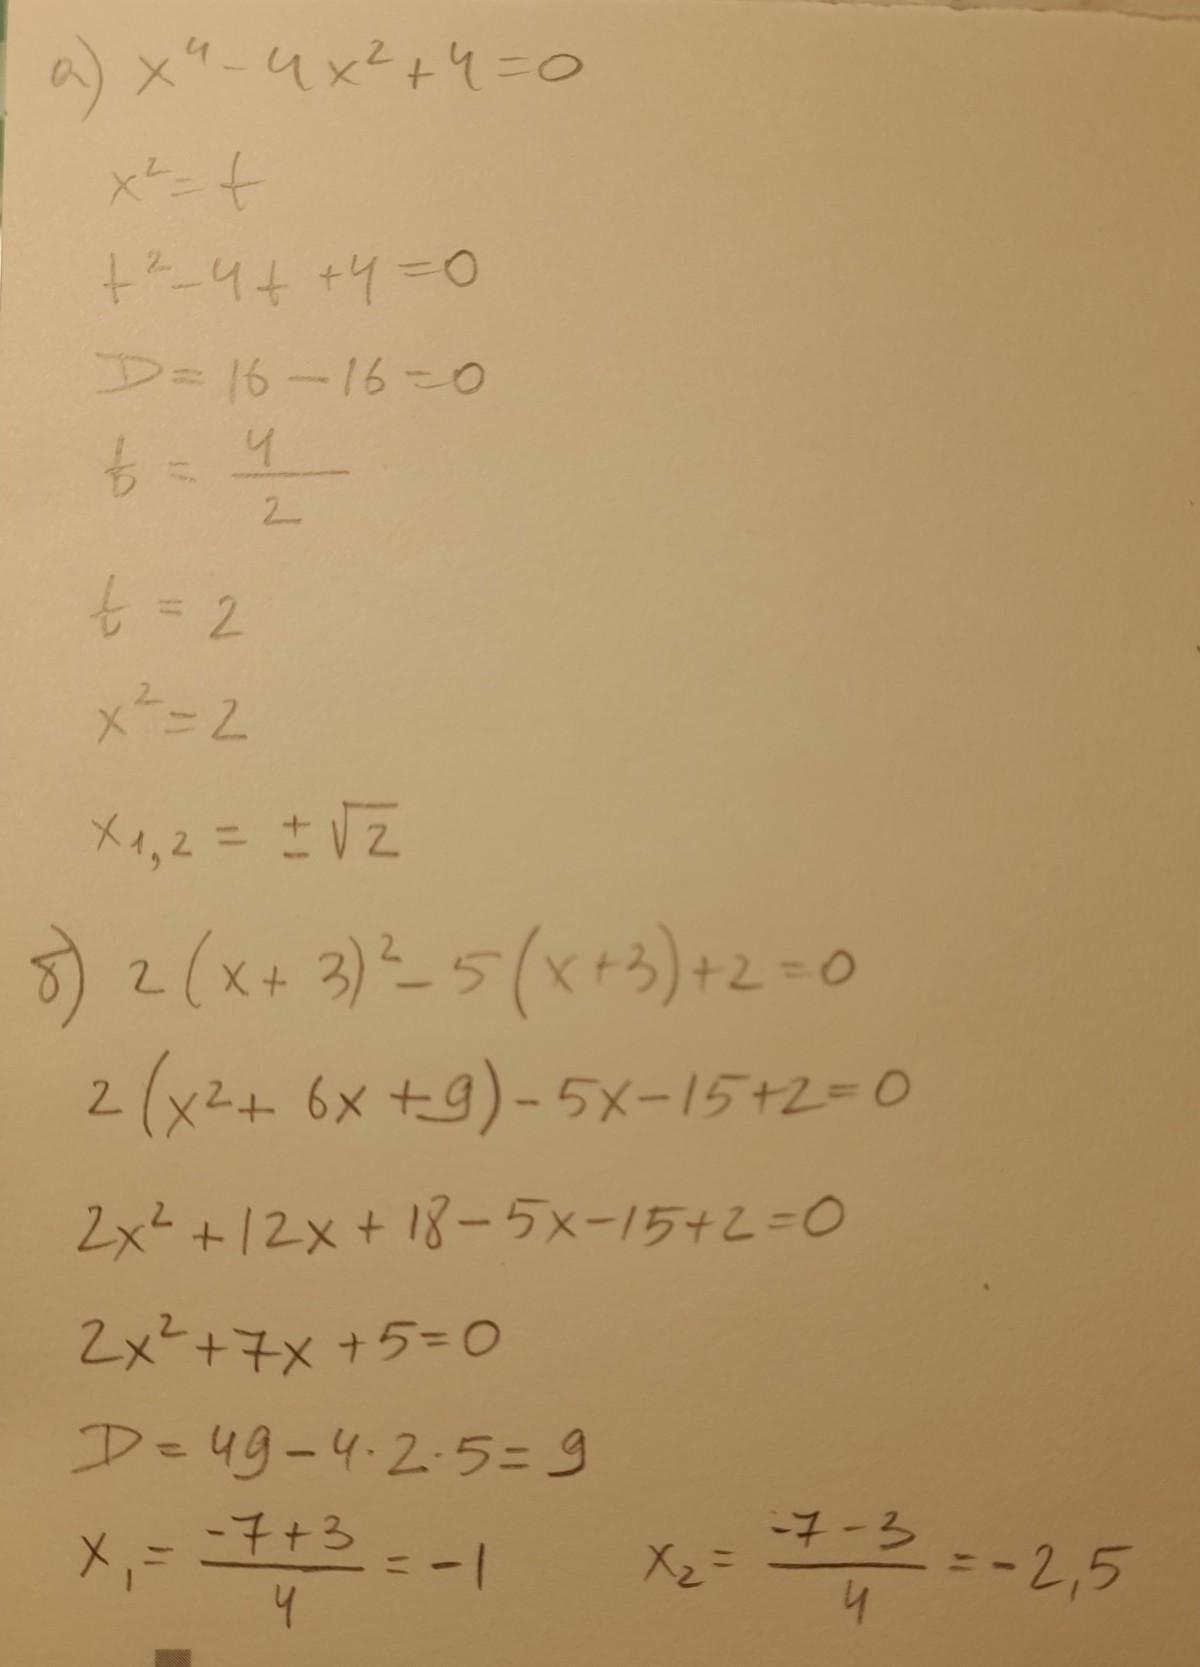 а) x⁴ - 4x² + 4 = 0
x² = t
t² - 4t + 4 = 0
D = 16 - 16 = 0
t = 4/2
t = 2
x² = 2
x₁,₂ = ±√2
б) 2(x + 3)² - 5(x + 3) + 2 = 0
2(x² + 6x + 9) - 5x - 15 + 2 = 0
2x² + 12x + 18 - 5x - 15 + 2 = 0
2x² + 7x + 5 = 0
D = 49 - 4·2·5 = 9
x₁ = (-7+3)/4 = -1 x₂ = (-7-3)/4 = -2,5